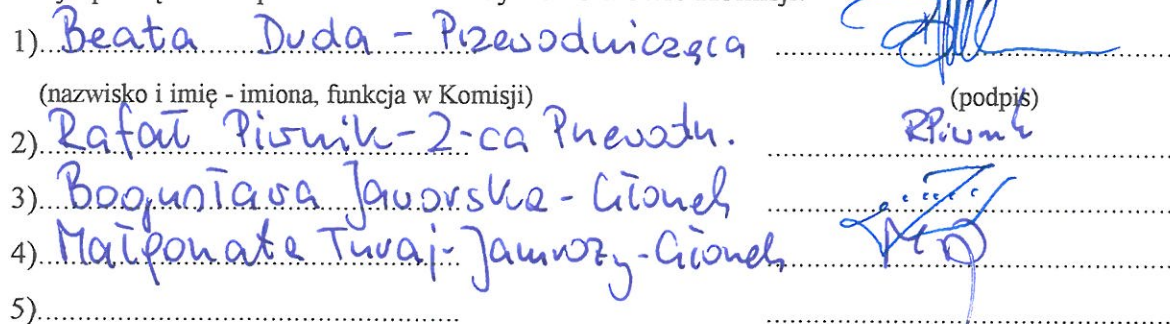 1) Beata Duda - Przewodnicząca
(nazwisko i imię - imiona, funkcja w Komisji) (podpis)
2) Rafał Piwnik - Z-ca Przewodn. RPiwnik
3) Bogusława Jaworska - Członek
4) Małgorzata Turaj - Jamrozy - Członek
5)